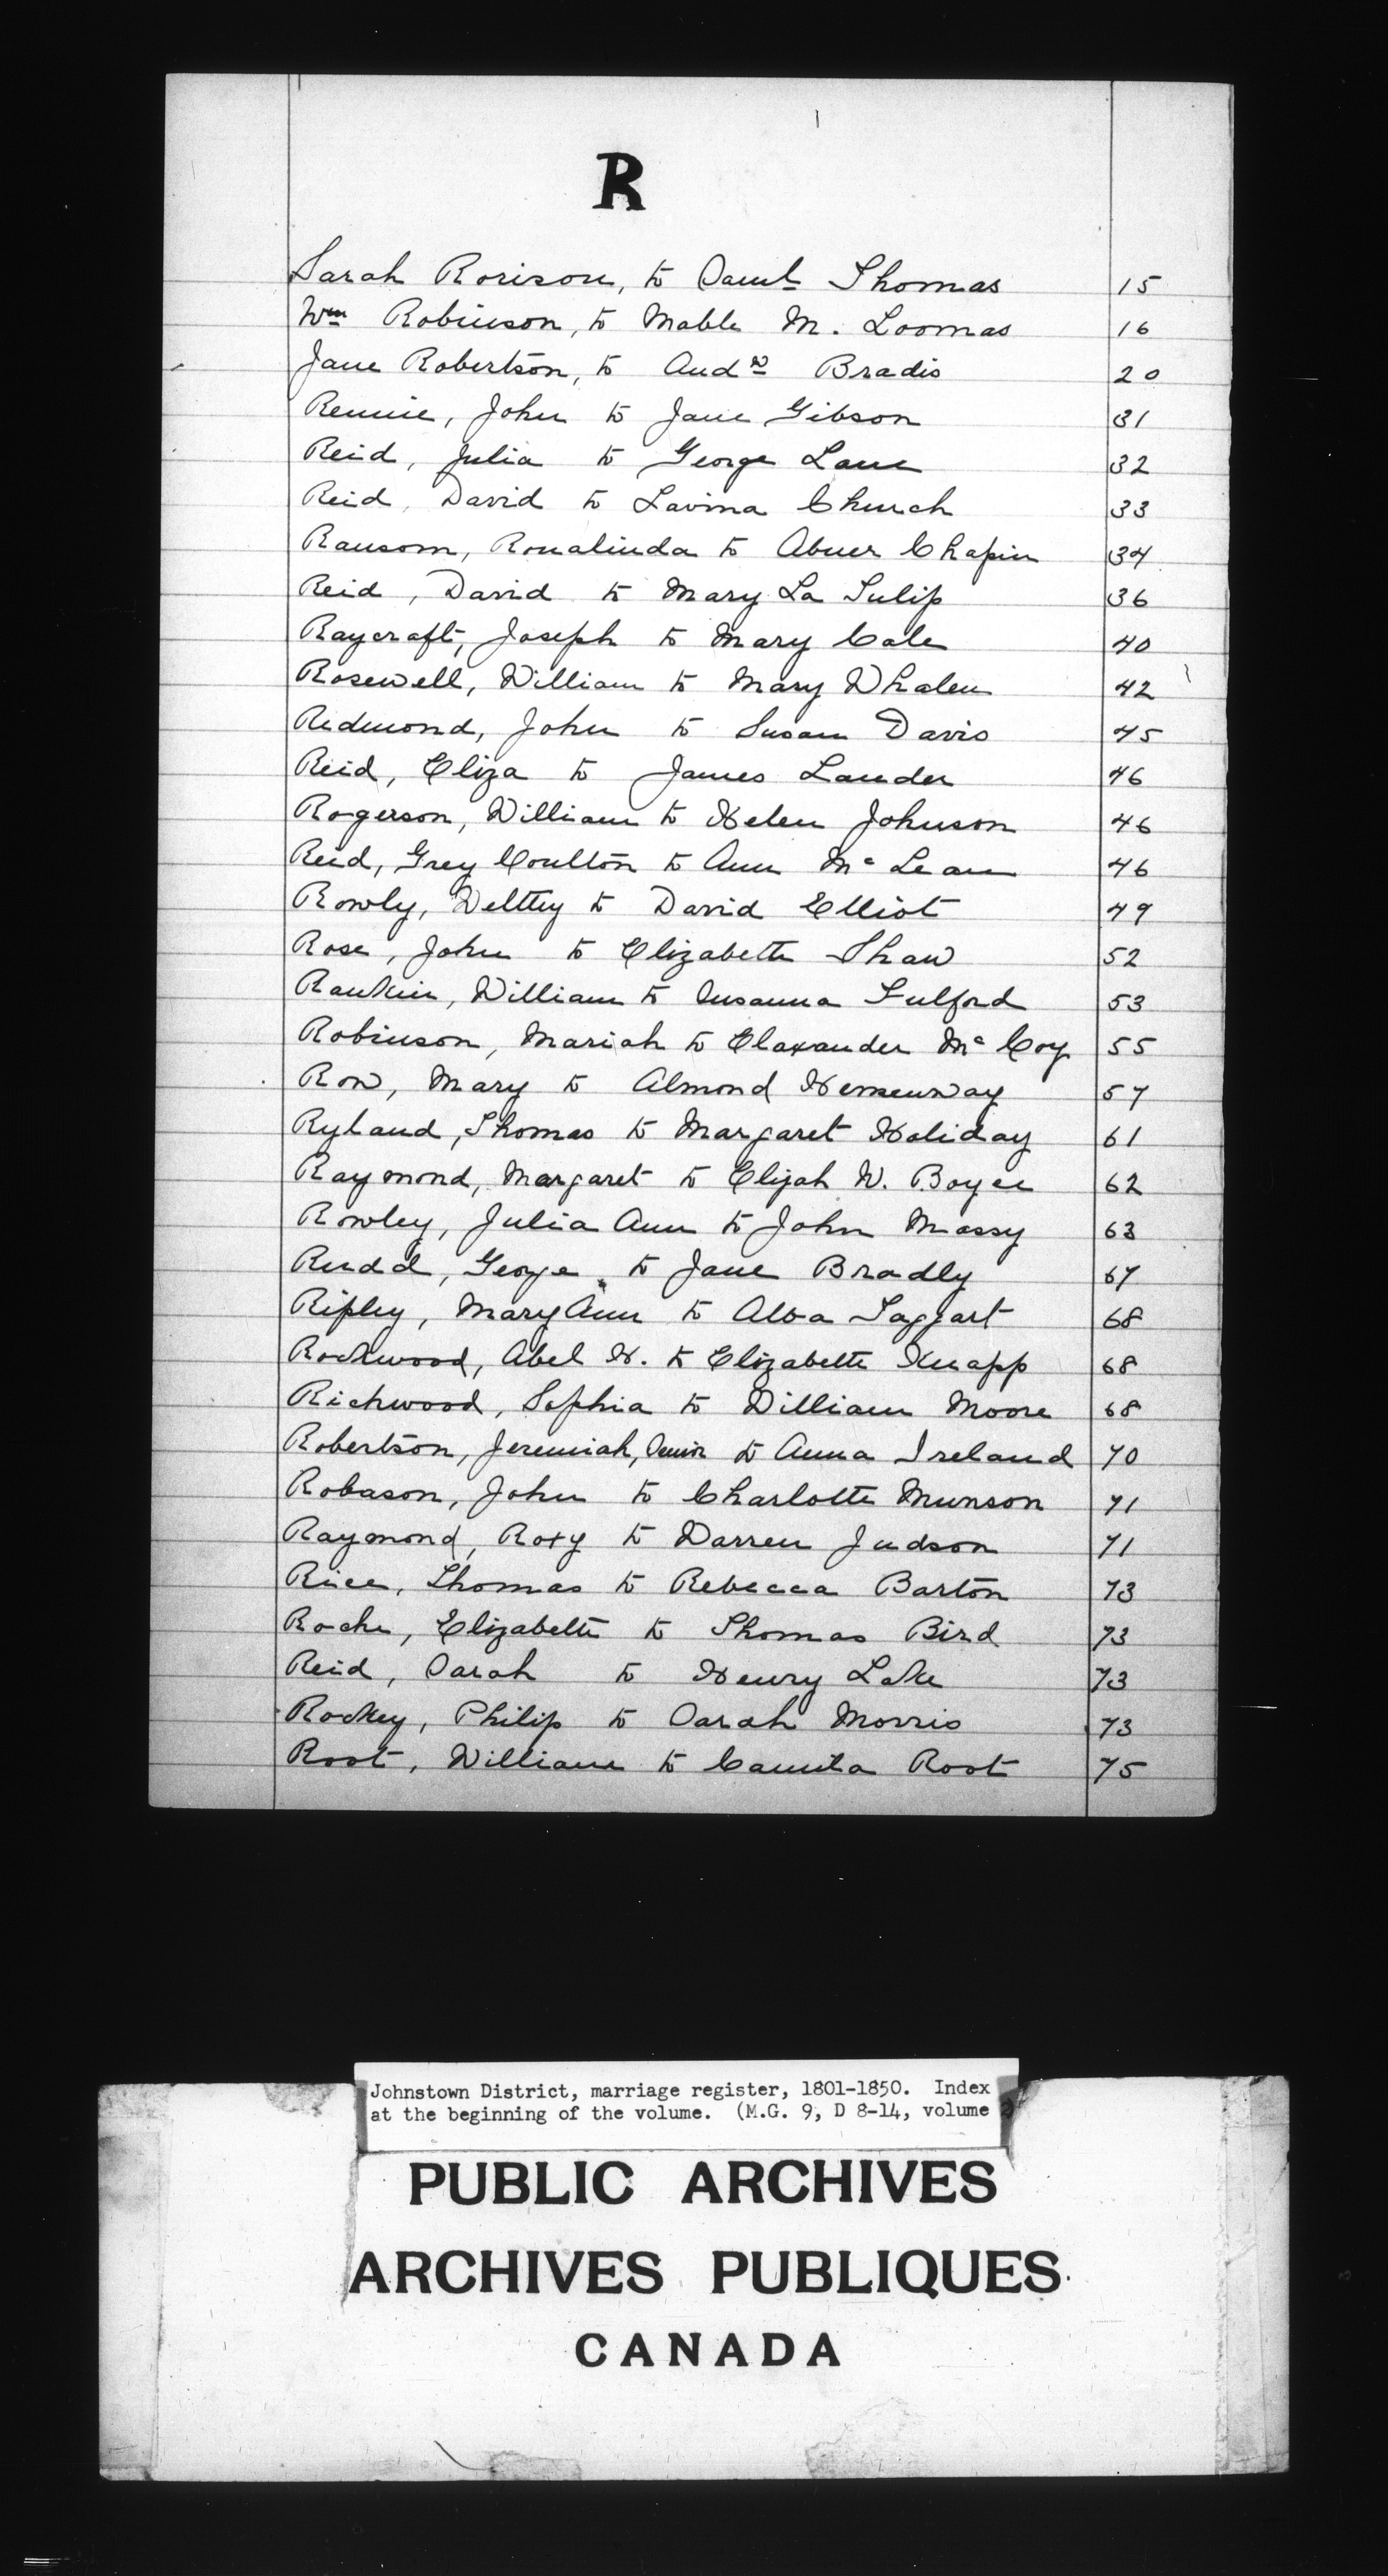 R
Sarah Rorison, to Saml Thomas 15
Wm Robinson, to Mable M. Loomas 16
Jane Robertson, to Andw Bradis 20
Rennie, John to Jane Gibson 31
Reid, Julia to George Lane 32
Reid, David to Lavina Church 33
Ransom, Ronalinda to Abner Chapin 34
Reid, David to Mary La Tulip 36
Raycraft, Joseph to Mary Cale 40
Rosewell, William to Mary Whalen 42
Redmond, John to Susan Davis 45
Reid, Eliza to James Lander 46
Rogerson, William to Helen Johnson 46
Reid, Grey Coulton to Ann Mc Lean 46
Rowly, Welthy to David Elliot 49
Rose, John to Elizabeth Shaw 52
Rankin, William to Susanna Fulford 53
Robinson, Mariah to Elaxander Mc Coy 55
Row, Mary to Almond Hemenway 57
Ryland, Thomas to Margaret Holiday 61
Raymond, Margaret to Elijah W. Boyce 62
Rowley, Julia Ann to John Massy 63
Rudd, George to Jane Bradly 67
Ripley, Mary Ann to Alva Taggart 68
Rockwood, Abel H. to Elizabeth Knapp 68
Richwood, Sophia to William Moore 68
Robertson, Jeremiah, Senior to Anna Ireland 70
Robason, John to Charlotte Munson 71
Raymond, Roxy to Warren Judson 71
Rice, Thomas to Rebecca Barton 73
Roche, Elizabeth to Thomas Bird 73
Reid, Sarah to Henry Lake 73
Rockey, Philip to Sarah Morris 73
Root, William to Camila Root 75
Johnstown District, marriage register, 1801-1850. Index
at the beginning of the volume. (M.G. 9, D 8-14, volume
PUBLIC ARCHIVES
ARCHIVES PUBLIQUES
CANADA